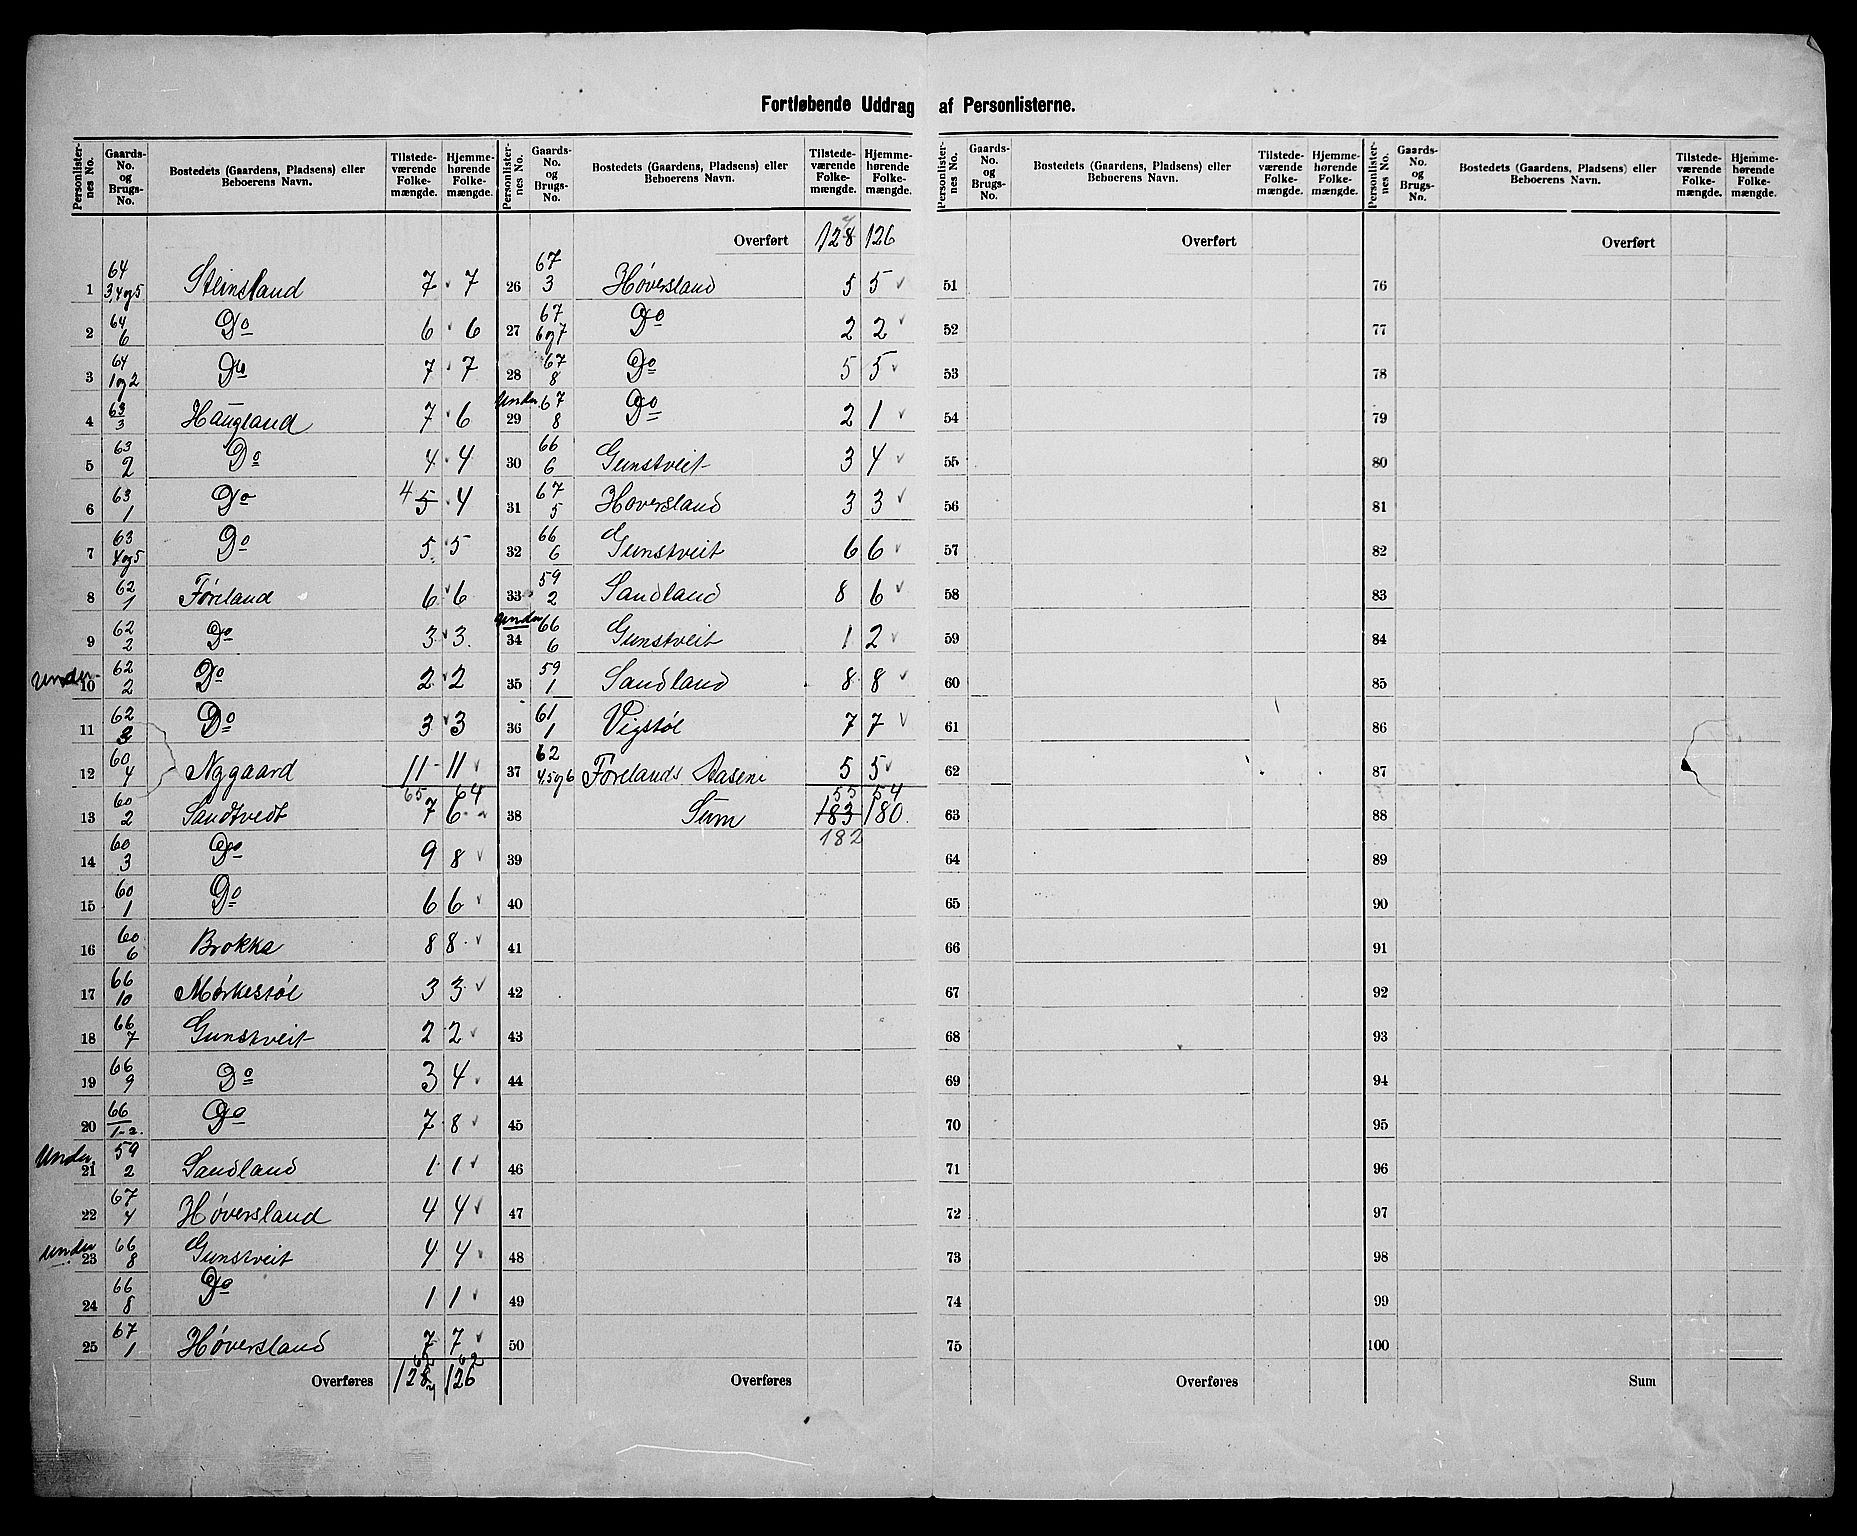 Fortløbende Uddrag af Personlisterne.
Personlister-nes No. | Gaards-No. og Brugs-No. | Bostedets (Gaardens, Pladsens) eller Beboerens Navn. | Tilstede-værende Folke-mængde. | Hjemme-hørende Folke-mængde.
1 | 64 3,4og5 | Steinsland | 7 | 7
2 | 64 6 | Do | 6 | 6
3 | 64 1og2 | Do | 7 | 7
4 | 63 3 | Haugland | 7 | 6
5 | 63 2 | Do | 4 | 4
6 | 63 1 | Do | 4 5 | 4
7 | 63 4og5 | Do | 5 | 5
8 | 62 1 | Føreland | 6 | 6
9 | 62 2 | Do | 3 | 3
under 10 | 62 2 | Do | 2 | 2
11 | 62 3 | Do | 3 | 3
12 | 60 4 | Nygaard | 11 | 11
65 | 64
13 | 60 2 | Sandtvedt | 7 | 6
14 | 60 3 | Do | 9 | 8
15 | 60 1 | Do | 6 | 6
16 | 60 6 | Brokka | 8 | 8
17 | 66 10 | Mørkestøl | 3 | 3
18 | 66 7 | Gunstveit | 2 | 2
19 | 66 9 | Do | 3 | 4
20 | 66 1-2. | Do | 7 | 8
Under 21 | 59 2 | Sandland | 1 | 1
22 | 67 4 | Høversland | 4 | 4
under 23 | 66 8 | Gunstveit | 4 | 4
24 | 66 8 | Do | 1 | 1
25 | 67 1 | Høversland | 7 | 7
62 | 62
Overføres | 128 7 | 126
Personlister-nes No. | Gaards-No. og Brugs-No. | Bostedets (Gaardens, Pladsens) eller Beboerens Navn. | Tilstede-værende Folke-mængde. | Hjemme-hørende Folke-mængde.
Overført | 128 7 | 126
26 | 67 3 | Høversland | 5 | 5
27 | 67 6og7 | Do | 2 | 2
28 | 67 8 | Do | 5 | 5
Under 29 | 67 8 | Do | 2 | 1
30 | 66 6 | Gunstveit | 3 | 4
31 | 67 5 | Hoversland | 3 | 3
32 | 66 6 | Gunstveit | 6 | 6
33 | 59 2 | Sandland | 8 | 6
under 34 | 66 6 | Gunstveit | 1 | 2
35 | 59 1 | Sandland | 8 | 8
36 | 61 1 | Vigstøl | 7 | 7
37 | 62 4,5og6 | Forelands Aasene | 5 | 5
55 | 54
38 | Sum | 183 | 180.
182
39
40
41
42
43
44
45
46
47
48
49
50
Overføres
Personlister-nes No. | Gaards-No. og Brugs-No. | Bostedets (Gaardens, Pladsens) eller Beboerens Navn. | Tilstede-værende Folke-mængde. | Hjemme-hørende Folke-mængde.
Overført
51
52
53
54
55
56
57
58
59
60
61
62
63
64
65
66
67
68
69
70
71
72
73
74
75
Overføres
Personlister-nes No. | Gaards-No. og Brugs-No. | Bostedets (Gaardens, Pladsens) eller Beboerens Navn. | Tilstede-værende Folke-mængde. | Hjemme-hørende Folke-mængde.
Overført
76
77
78
79
80
81
82
83
84
85
86
87
88
89
90
91
92
93
94
95
96
97
98
99
100
Sum